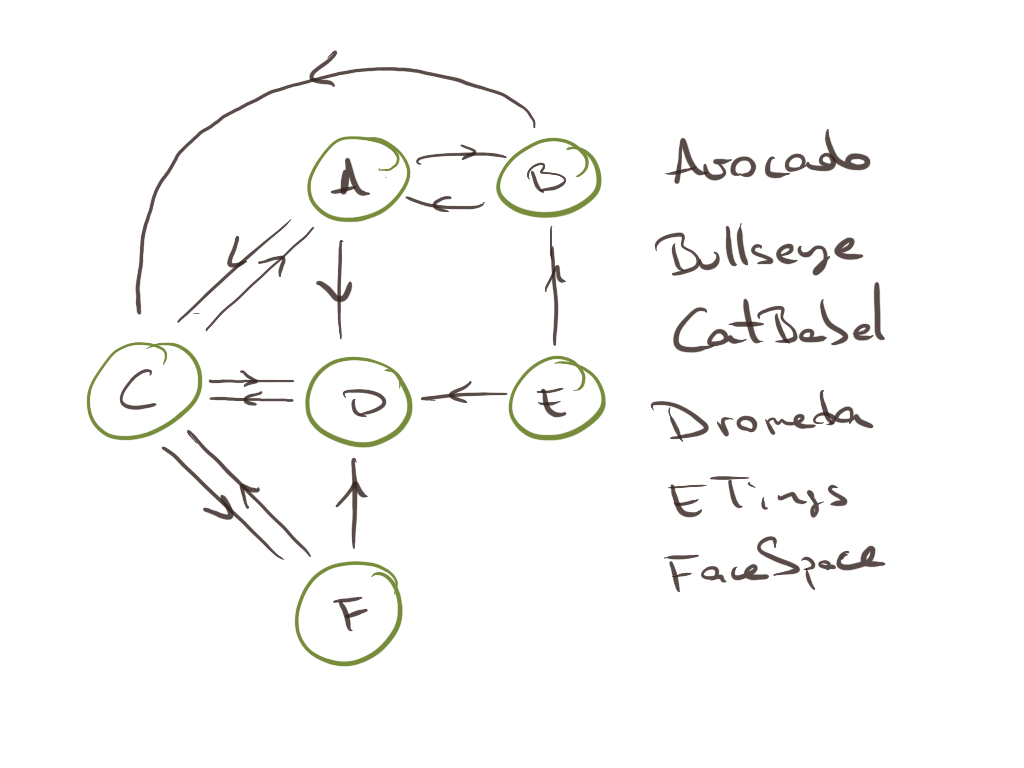 A
B
C
D
E
F
Avocado
Bullseye
CatBabel
Dromeda
ETings
FaceSpace